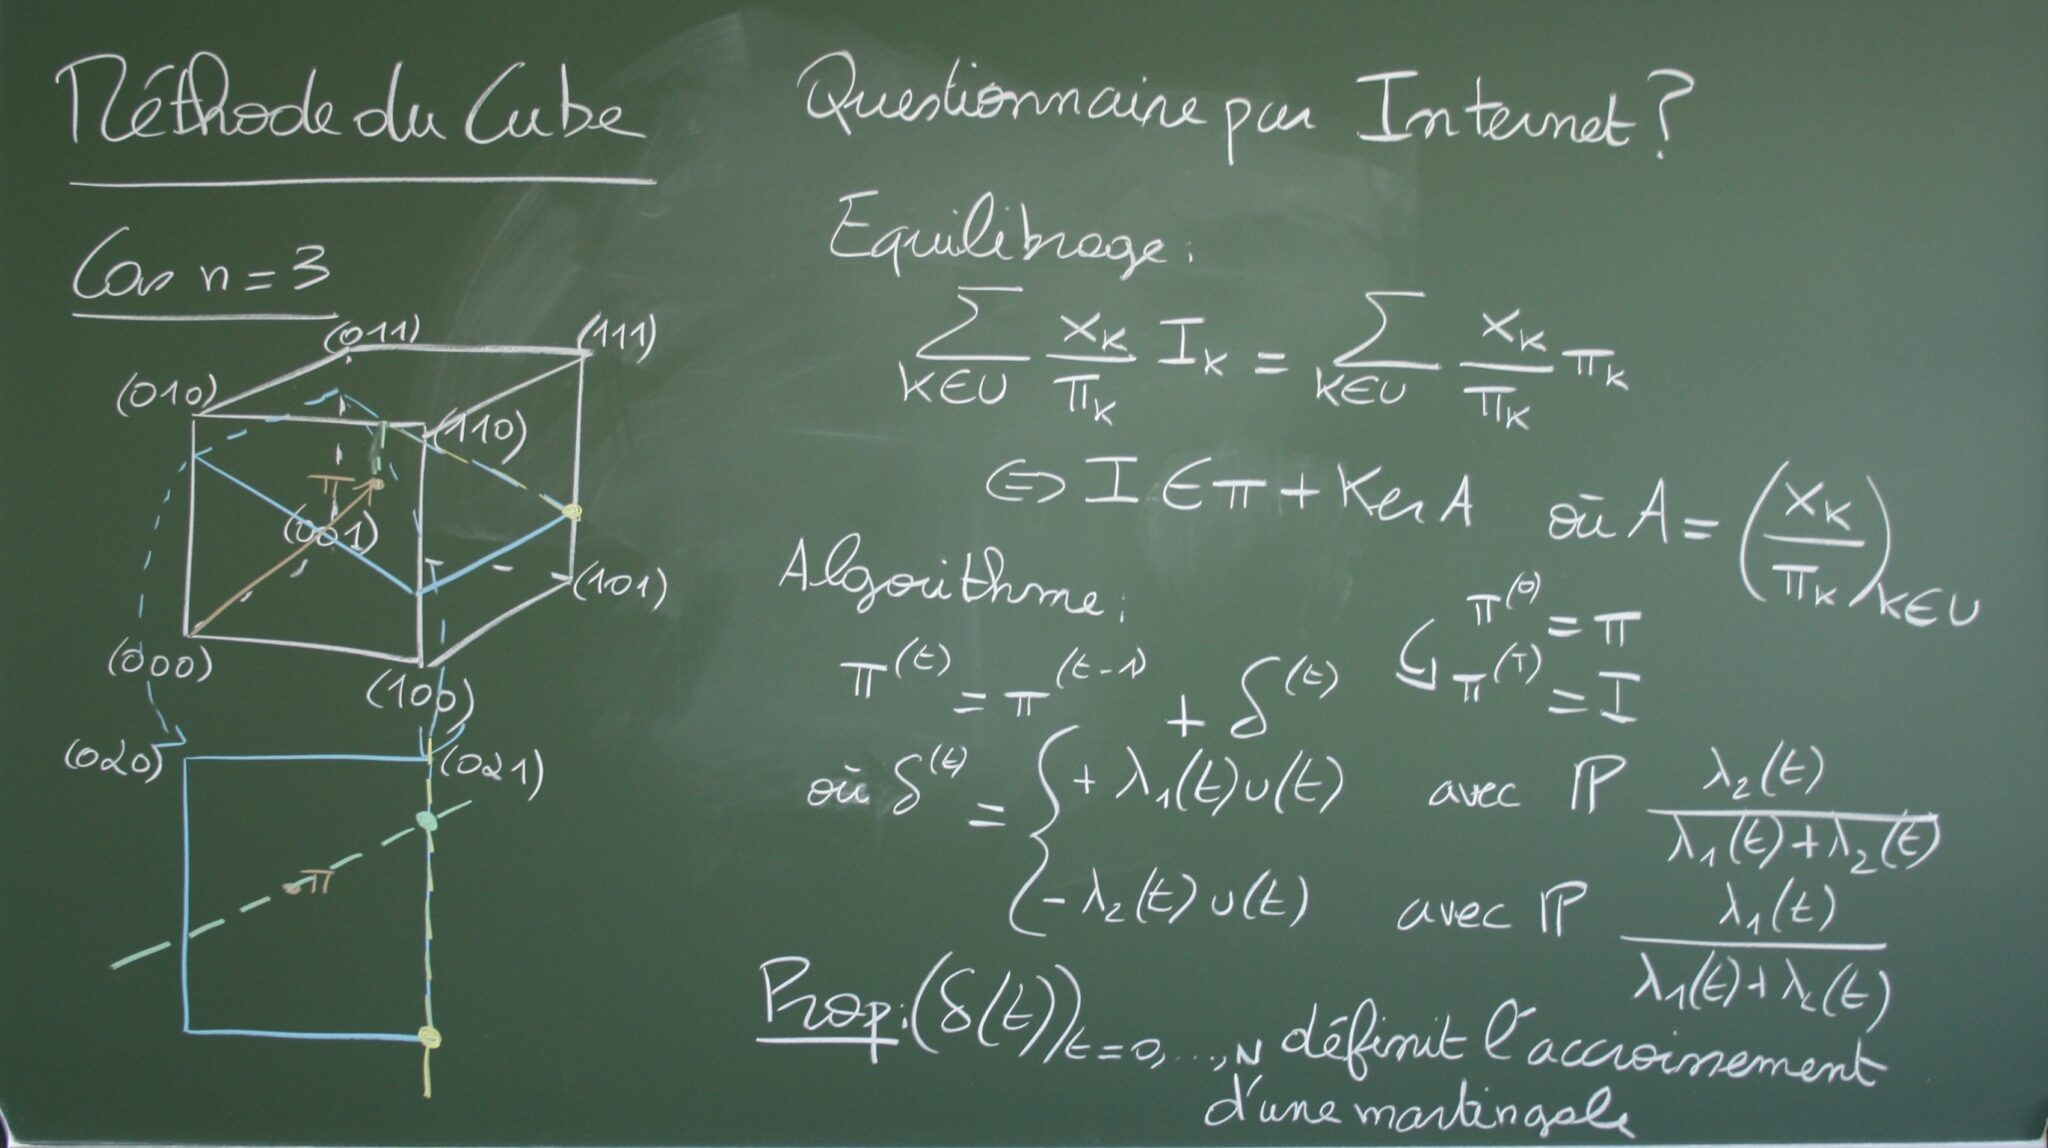 Méthode du Cube
Cas n = 3
(011) (111)
(010) (110)
π
(001)
(101)
(000)
(100)
(020) (021)
π
Questionnaire par Internet ?
Equilibrage :
∑_{k∈U} x_k/π_k I_k = ∑_{k∈U} x_k/π_k π_k
⇔ I ∈ π + Ker A où A = (x_k/π_k)_{k∈U}
Algorithme :
π^(0) = π
π^(t) = π^(t-1) + δ^(t) π^(T) = I
où δ^(t) = { + λ₁(t) u(t) avec ℙ λ₂(t)/(λ₁(t)+λ₂(t))
- λ₂(t) u(t) avec ℙ λ₁(t)/(λ₁(t)+λ₂(t))
Prop : (δ(t))_{t=0,...,N} définit l'accroissement
d'une martingale